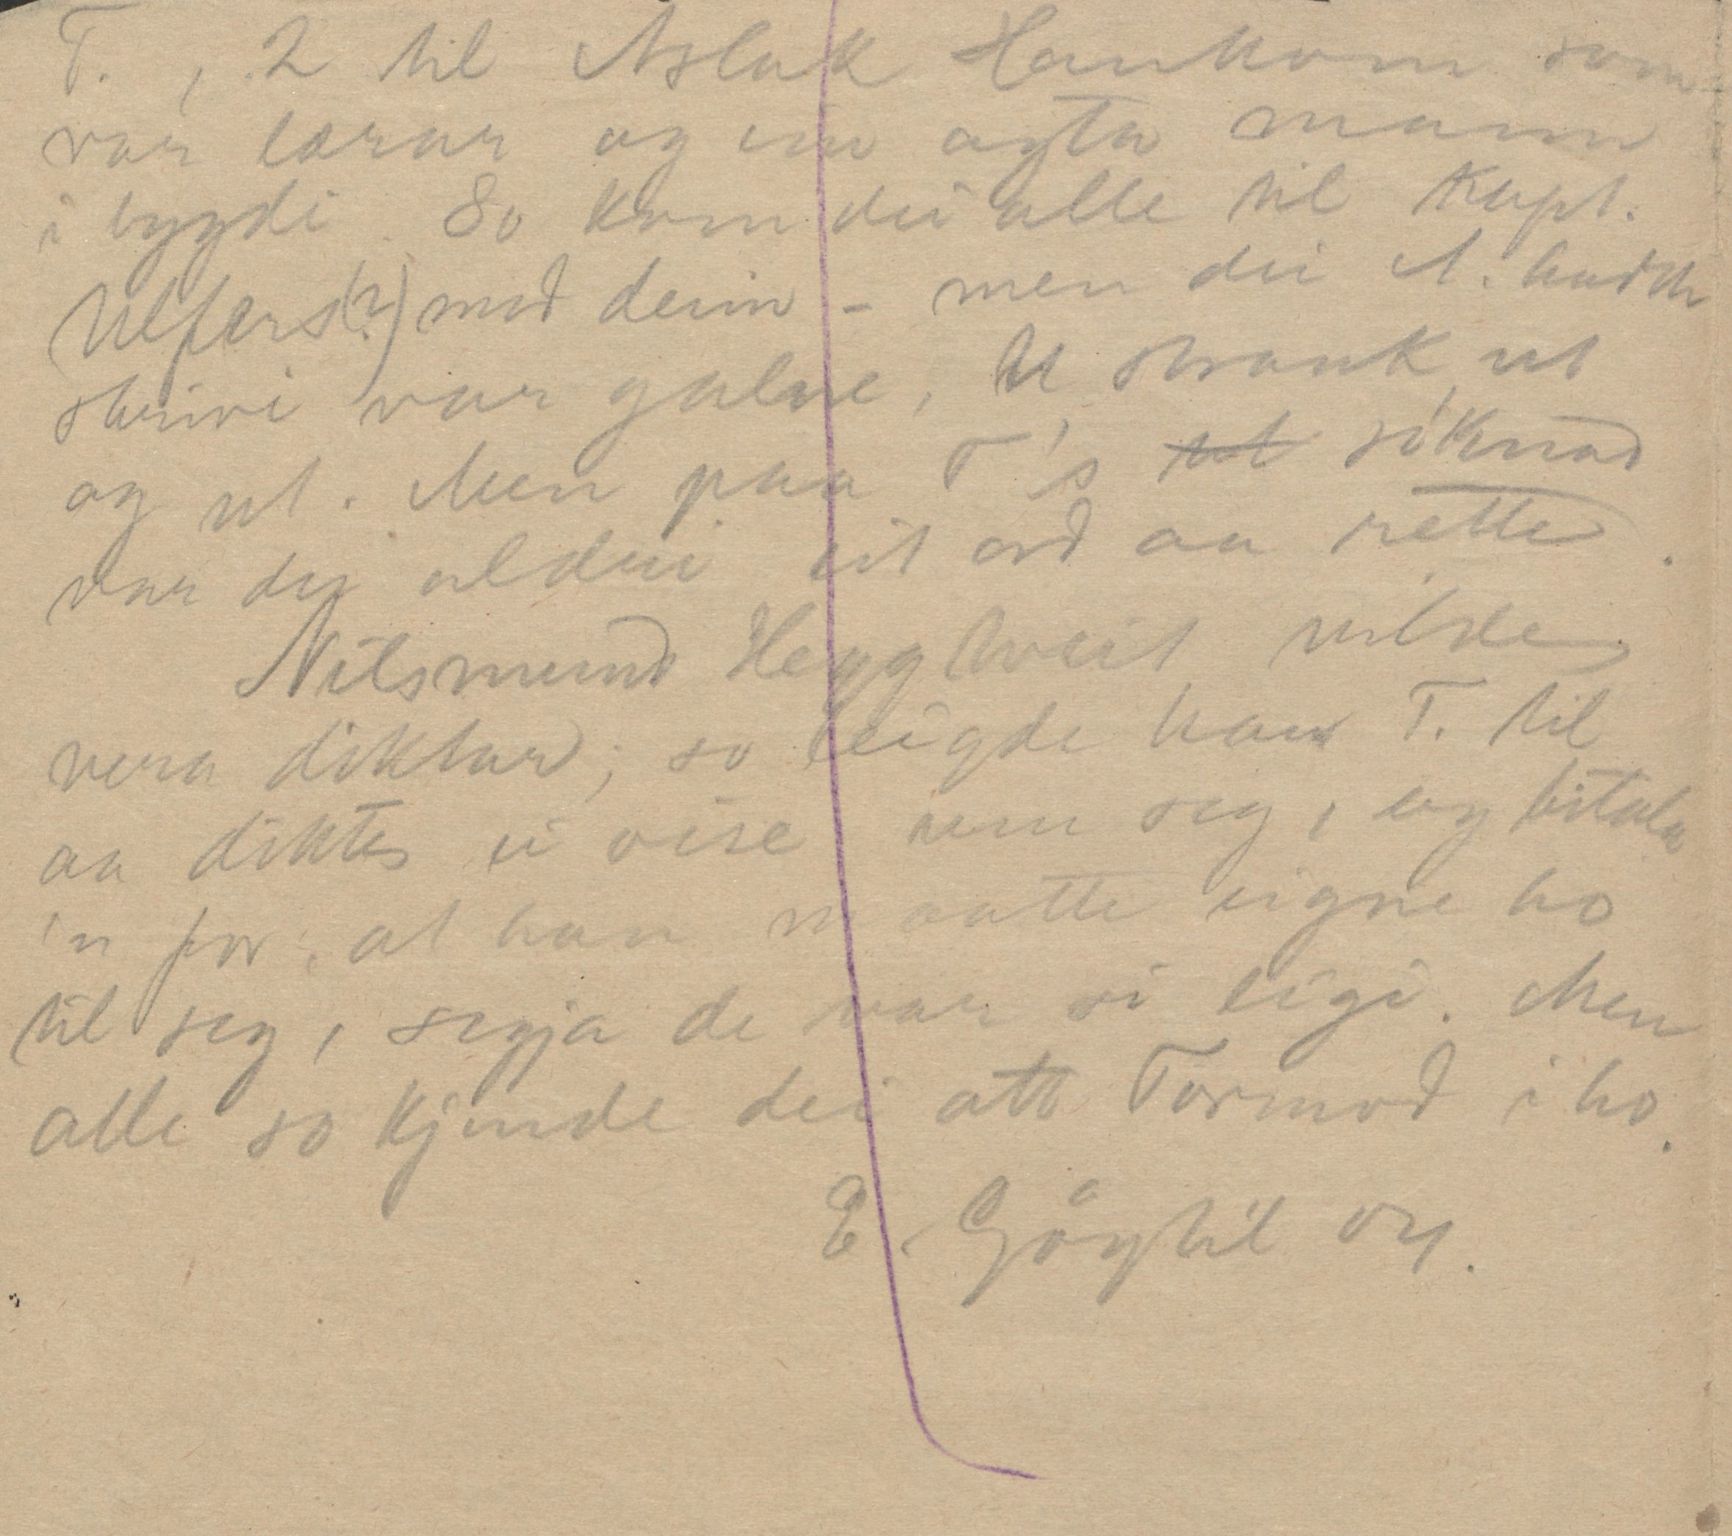 T., 2 til Aslak Haukom som
var lærar og ein agta mann
i bygdi. So kom dei alle til Kapt.
Ulfers(?) med deim - men dei A. hadde
skrivi var galne, U strauk ut
og ut. Men paa T's ut söknad
var de aldri eit ord aa rette.
Nilsmund Heggtveit vilde
vera diktar; so leigde han T. til
aa dikte ei vise um seg, og betala
'n for, at han maatte eigne ho
til seg, segja de var si eigi. Men
alle so kjende dei att Tormod i ho.
E. Göytil